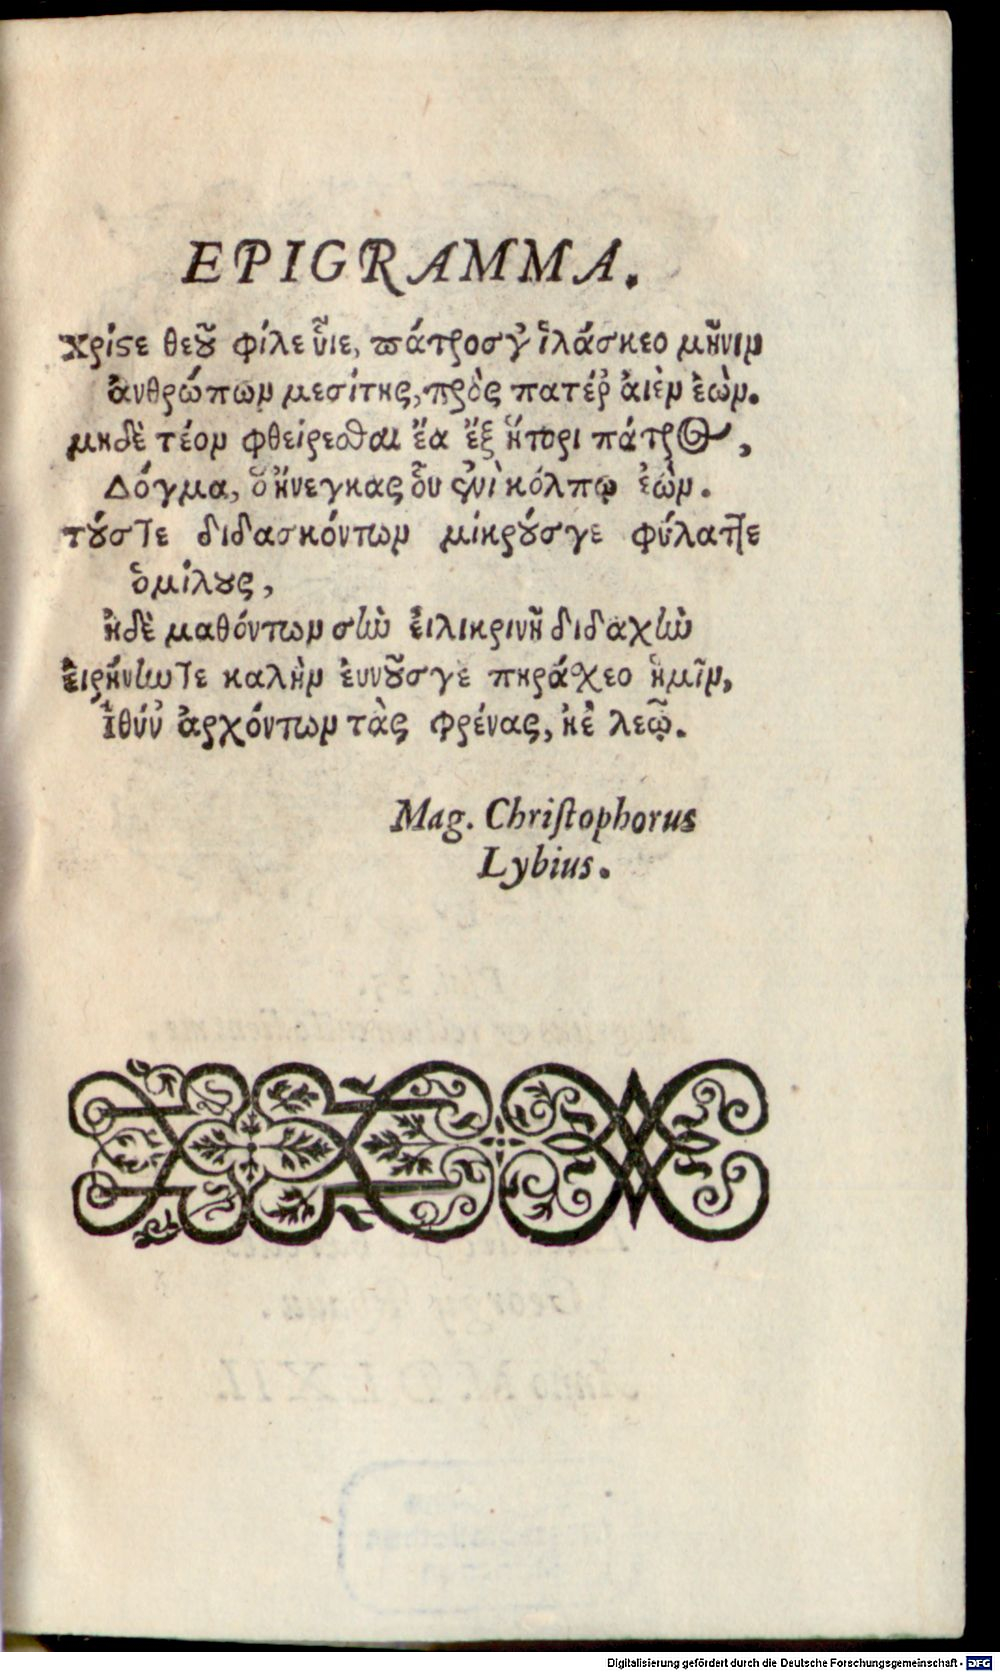 EPIGRAMMA.
Χρίϛε θεοῦ φίλε ὗιε, πάτροσγ' ἱλάσκεο μῆνιν
ἀνθρώπων μεσίτης, πρὸς πατέρ' ἀιὲν ἐὼν.
μηδὲ τέον φθείρεσθαι ἔα ἔξ ἤτορι πάτρος,
Δόγμα, ὃ ἤνεγκας ὅυ ἐνὶ κόλπῳ ἐὼν.
τούστε διδασκόντων μίκρούσγε φύλαττε
ὁμίλους,
ἠδὲ μαθόντων σὴν ἐιλικρινῆ διδαχὴν
ἐιρήνηντε καλὴν ἐυνοῦσγε παράσχεο ἡμῖν,
ἰθύν' ἀρχόντων τὰς φρένας, ἠὲ λεῶ.
Mag. Chriſtophorus
Lybius.
Digitalisierung gefördert durch die Deutsche Forschungsgemeinschaft - DFG